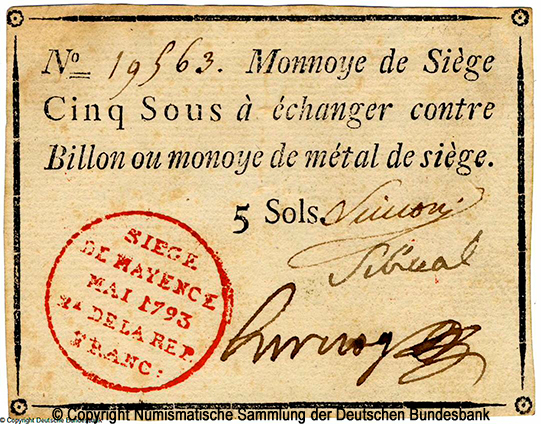 No 19563. Monnoye de Siège
Cinq Sous à échanger contre
Billon ou monoye de métal de siège.
5 Sols.
SIEGE
DE MAYENCE
MAI 1793
2e DE LA REP.
FRANC:
© Copyright Numismatische Sammlung der Deutschen Bundesbank
© Copyright Deutsche Bundesbank